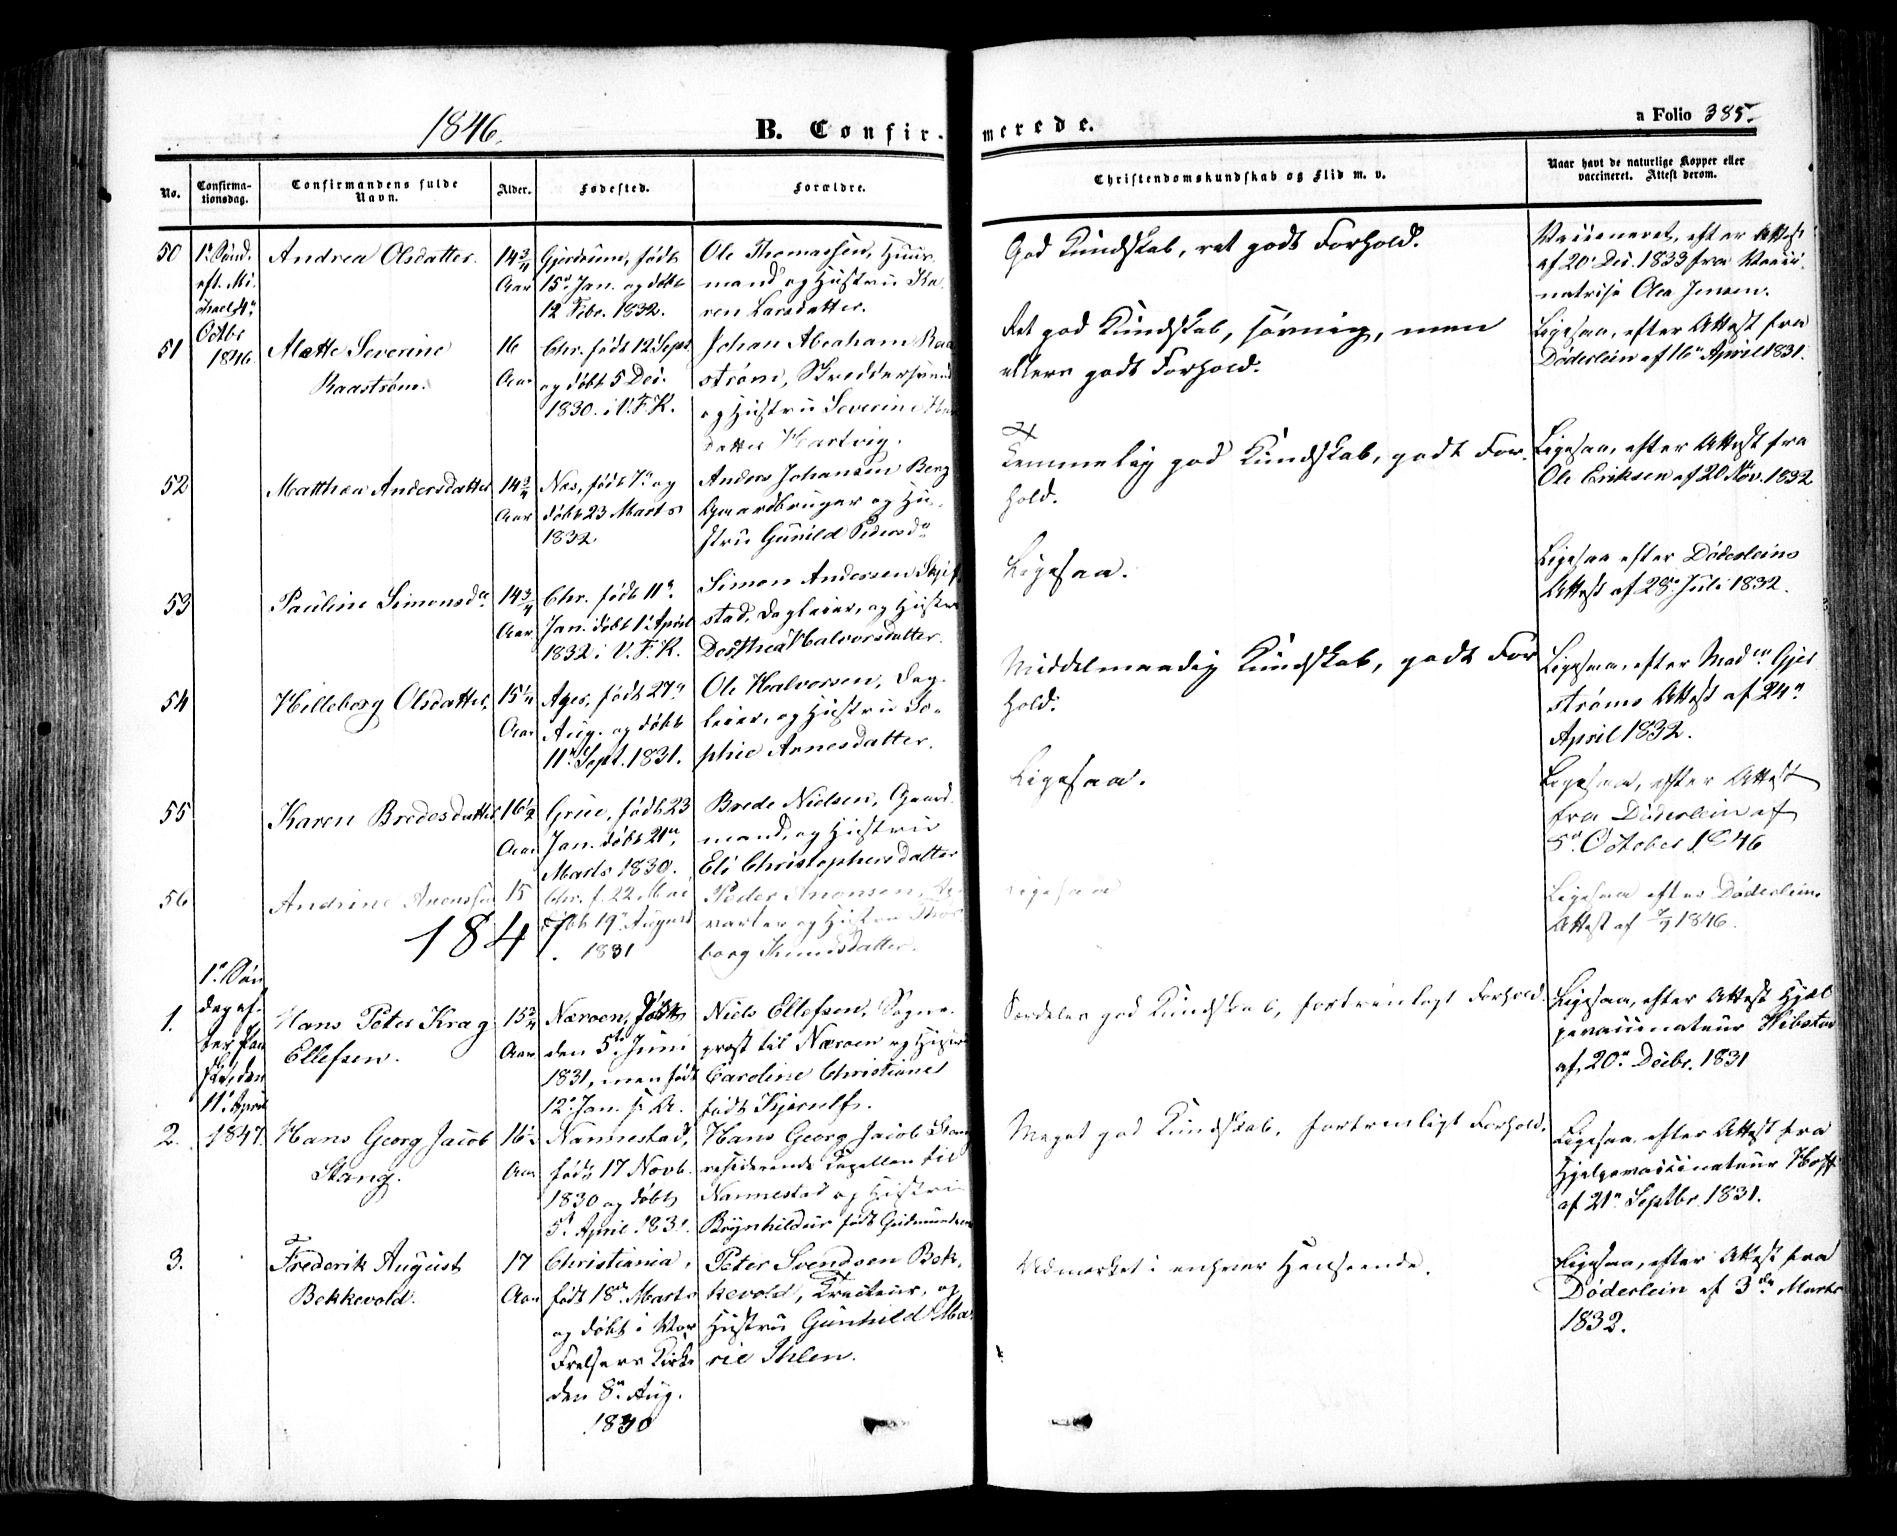 1846.
B. Confir-
merede.
a Folio 385.
No.
Confirma-
tionsdag.
Confirmandens fulde
Navn.
Alder.
Fødested.
Forældre.
Christendomskundskab og Flid m. v.
Naar havt de naturlige Kopper eller
vaccineret. Attest derom.
50
1ste Sønd.
eft. Mi-
chael 4de
Octbr
1846.
Andrea Olsdatter.
14 3/4
Aar
Gjerdrum, født
15de Jan. og døbt
12 Febr. 1832.
Ole Thomassen, Huus-
mand og Hustru Ka-
ren Larsdatter.
God Kundskab, ret godt Forhold.
Vaccineret, efter Attest
af 20de Dec. 1833 fra Vacci-
natrise Olea Jensen.
51
Mette Severine
Raastrøm.
16
Aar
Chr. født 12 Sept
og døbt 5 Dec.
1830. i V. F. K.
Johan Abraham Raa
strøm, Skreddersvend
og Hustru Severine
datter Hartvig.
Ret god Kundskab, men
ellers godt Forhold.
Ligesaa, efter Attest fra
Døderlein af 16de April 1831.
52
Matthea Andersdatter
14 3/4
Aar
Næs, født 7de og
døbt 23 Marts
1832
Anders Johansen Berg
Gaardbruger og Hu-
stru Gunild Pedersdr
Temmelig god Kundskab, godt For-
hold.
Ligesaa, efter Attest fra
Ole Eriksen af 20 Nov. 1832
53
Pauline Simensdr
14 3/4
Aar
Chr. født 11te
Jan. døbt 1ste April
1832 i V. F. K.
Simon Andersen
stad, Dagleier, og Hustru
Dorthea Halvorsdatter.
Ligesaa.
Ligesaa efter Døderleins
Attest af 28de Juli 1832.
54
Hilleborg Olsdatter,
15 1/4
Aar
Ager, født 27de
Aug. og døbt
11te Sept. 1831.
Ole Halvorsen, Dag-
leier, og Hustru So-
phie Arnesdatter.
Middelmaadig Kundskab, godt For
hold.
Ligesaa, efter Madm Gjer
strøms Attest af 24de
April 1832.
55
Karen Bredesdatter
16 1/2
Aar
Grue, født 23
Jan. døbt 21de
Marts 1830.
Brede Nielsen, Gaard
mand, og Hustru
Eli Christophersdatter
Ligesaa.
Ligesaa, efter Attest
fra Døderlein af
5de October 1846
56
Andrine
15
Chr. f. 22 Mai
døbt 19de August
1831
Peder
og Hustru Thor
borg
Ligesaa
Ligesaa efter Døderleins
Attest af 1846.
1847.
1.
1ste Søn
dag ef-
ter Paa
ske, den
11te April
1847.
Hans Peter Krag
Ellefsen.
15 3/4
Aar
Nærøen, døbt
den 5te Juni
1831, men født
12te Jan. s. A.
Niels Ellefsen, Sogne-
præst til Nærøen og Hustru
Caroline Christiane
født Kjerulf.
Særdeles god Kundskab, fortrinligt Forhold.
Ligesaa, efter Attest Hjæl
pevaccinateur
af 20de Decbr. 1831
2.
Hans Georg Jacob
Stang.
16 1/2
Aar
Nannestad,
født 17 Novb.
1830 og døbt
5te April 1831.
Hans Georg Jacob Stang
residerende Capellan til
Nannestad og Hustru
Brynhildur født Gudmundsen
Meget god Kundskab, fortrinligt Forhold.
Ligesaa, efter Attest fra
Hjelpevaccinateur Hoff
af 21de Septbr. 1831.
3.
Frederik August
Bekkevold.
17
Aar
Christiania,
født 18de Marts
og døbt i Vor
Frelsers Kirke
den 8de Aug.
1830
Peter Svendsen Bek-
kevold, Træteur, og
Hustru Gunhild Ma-
rie Ihlen.
Udmærket i enhver Henseende.
Ligesaa, efter Attest fra
Døderlein af 3die Marts
1832.